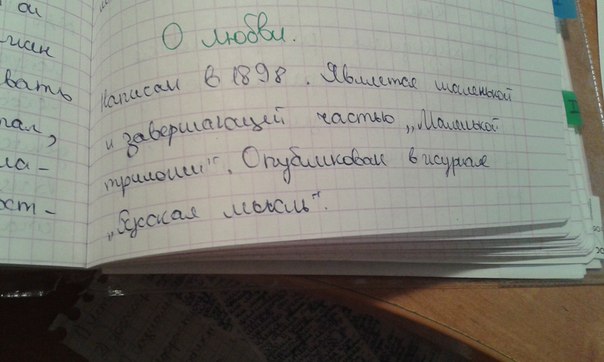 ал
ман
вать
лал,
ла-
ост-
О любви.
Написан в 1898. Является маленькой
и завершающей частью „Маленькой
трилогии". Опубликован в журнале
„Русская мысль".